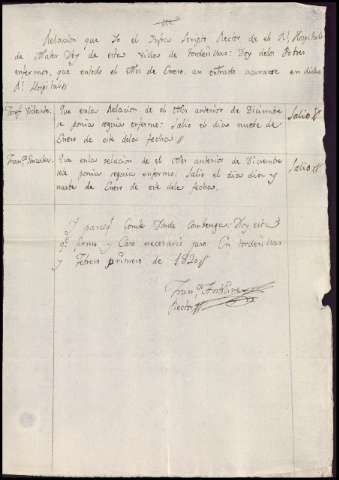 Relacion que Yo el Infro Rector de el Rl Hospital
de Mater Dey de esta Villa de Tordesillas: Doy delos Pobres
enfermos, que en todo el Mes de Enero, an entrado a curarse en dicho
Rl Hospital
Que en la Relacion de el Mes anterior de Diciembre
se ponia seguia enfermo: Salio el dia nuebe de
Enero de este dela fecha
Salio
Franco Gonzalez
Que en la relacion de el Mes anterior de Diciembre
se ponia seguia enfermo: Salio el dia diez y
nuebe de Enero de este dela fecha.
Salio
Y para qe Conste Donde Combenga: Doy esta
qe firmo y Caso necesario juro En Tordesillas
y Febrero primero de 1820
Franco
Rector